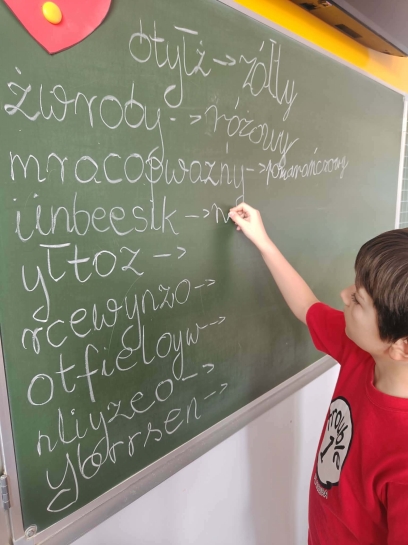 otyłż -> żółty
żwroby -> różowy
mracopważńy -> pomarańczowy
iinbeesik -> n
yłtoż ->
rcewynzo ->
otfieloyw ->
nliyzeo ->
ybrrsen ->